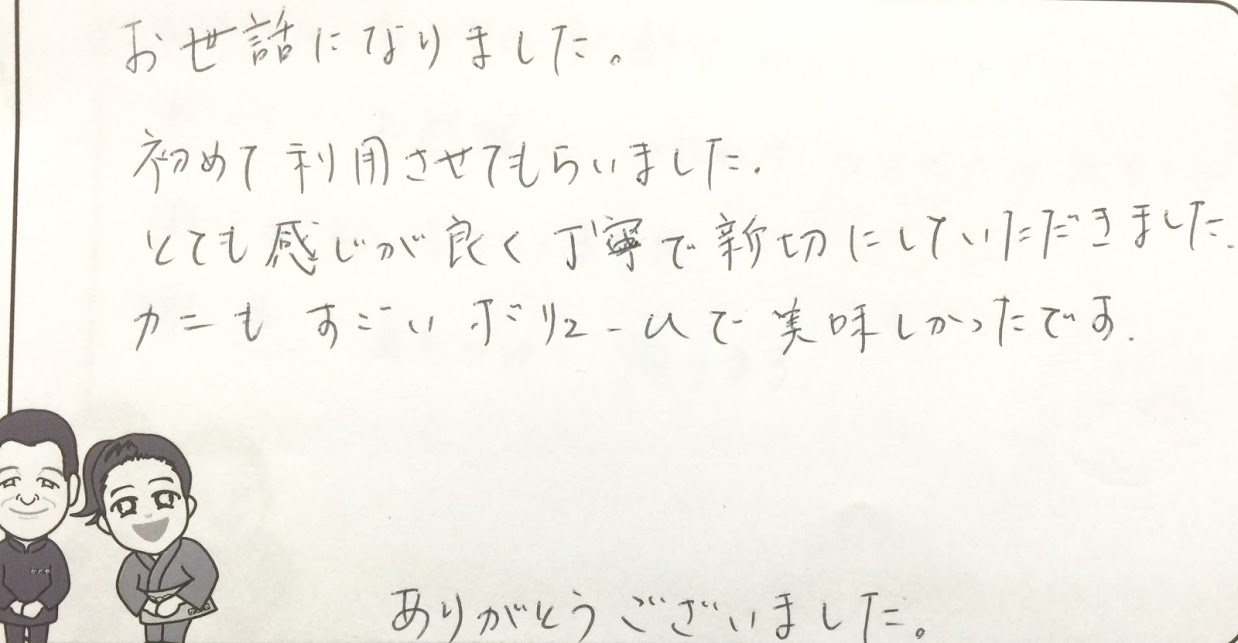 お世話になりました。
初めて利用させてもらいました.
とても感じが良く丁寧で新切にしていただきました.
カニもすごいボリュームで美味しかったです.
ありがとうございました。